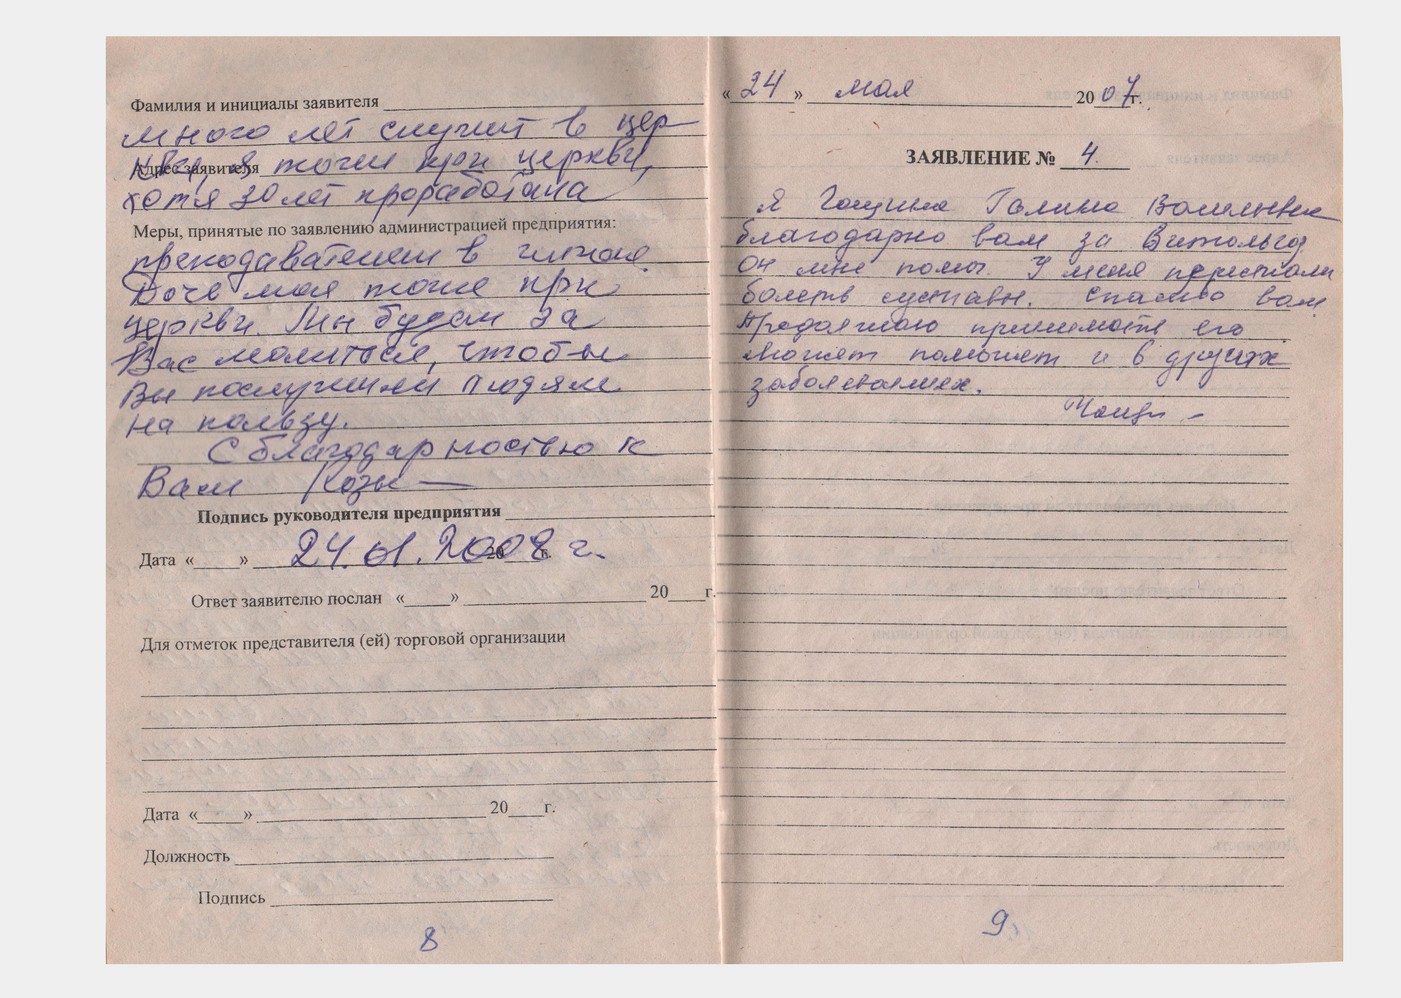 Фамилия и инициалы заявителя
много лет служит в цер-
Адрес заявителя
кви, я тоже при церкви,
хотя 30 лет проработала
Меры, принятые по заявлению администрацией предприятия:
преподавателем в
Дочь моя тоже при
церкви. Мы будем за
Вас молиться, чтобы
Вы послужили людям
на пользу.
С благодарностью к
Вам
Подпись руководителя предприятия
Дата « » 20 г.
24.01.2008 г.
Ответ заявителю послан « » 20 г.
Для отметок представителя (ей) торговой организации
Дата « » 20 г.
Должность
Подпись
8
« 24 » мая 2007г.
ЗАЯВЛЕНИЕ № 4.
Я Галина
благодарю вам за
он мне помог. У меня перестали
болеть суставы. Спасибо вам.
Продолжаю принимать его
может поможет и в других
заболеваниях.
9